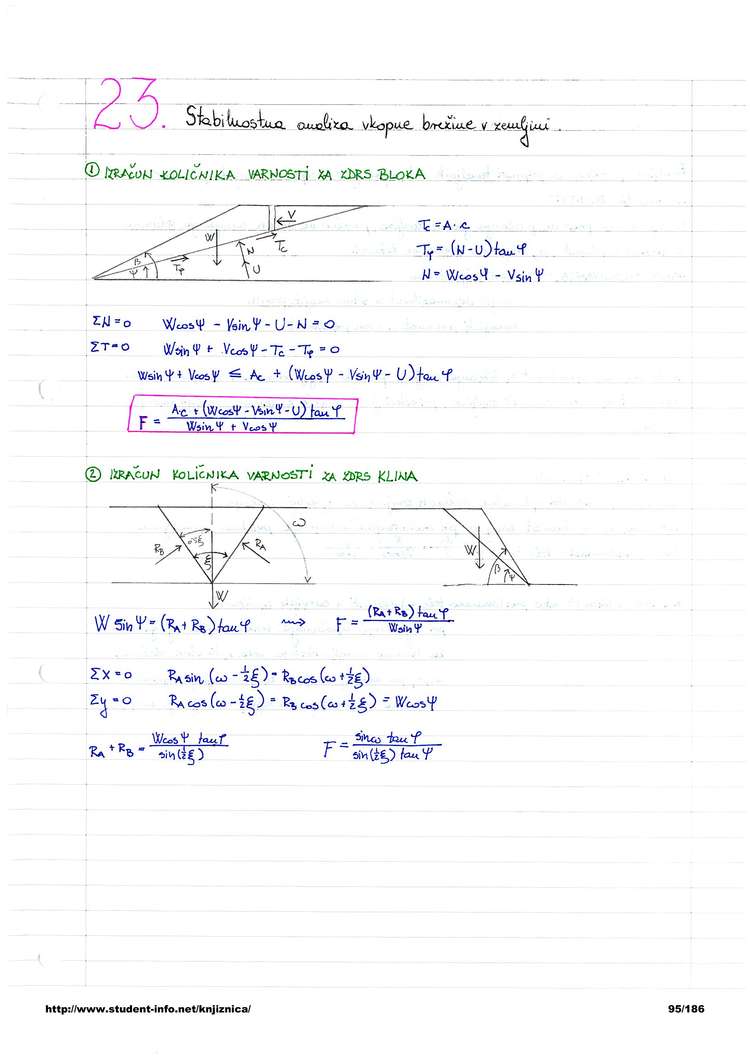 23. Stabilnostna analiza vkopne brežine v zemljini.
① IZRAČUN KOLIČNIKA VARNOSTI ZA ZDRS BLOKA
V
W
Tc
N
U
β
Ψ
Tφ
Tc = A·c
Tφ = (N-U) tan φ
N = W cos Ψ - V sin Ψ
ΣN=0 Wcos Ψ - Vsin Ψ - U - N = 0
ΣT=0 Wsin Ψ + Vcos Ψ - Tc - Tφ = 0
Wsin Ψ + Vcos Ψ ≤ Ac + (Wcos Ψ - Vsin Ψ - U) tan φ
F = (A·c + (Wcos Ψ - Vsin Ψ - U) tan φ) / (Wsin Ψ + Vcos Ψ)
② IZRAČUN KOLIČNIKA VARNOSTI ZA ZDRS KLINA
ω
0,5ξ
ξ
RB
RA
W
W
β
Ψ
W sin Ψ = (RA + RB) tan φ ⟿ F = ((RA + RB) tan φ) / (W sin Ψ)
Σx = 0 RA sin (ω - ½ξ) = RB cos (ω + ½ξ)
Σy = 0 RA cos (ω - ½ξ) = RB cos (ω + ½ξ) = W cos Ψ
RA + RB = (W cos Ψ tan φ) / (sin (½ξ)) F = (sin ω tan φ) / (sin (½ξ) tan Ψ)
http://www.student-info.net/knjiznica/ 95/186